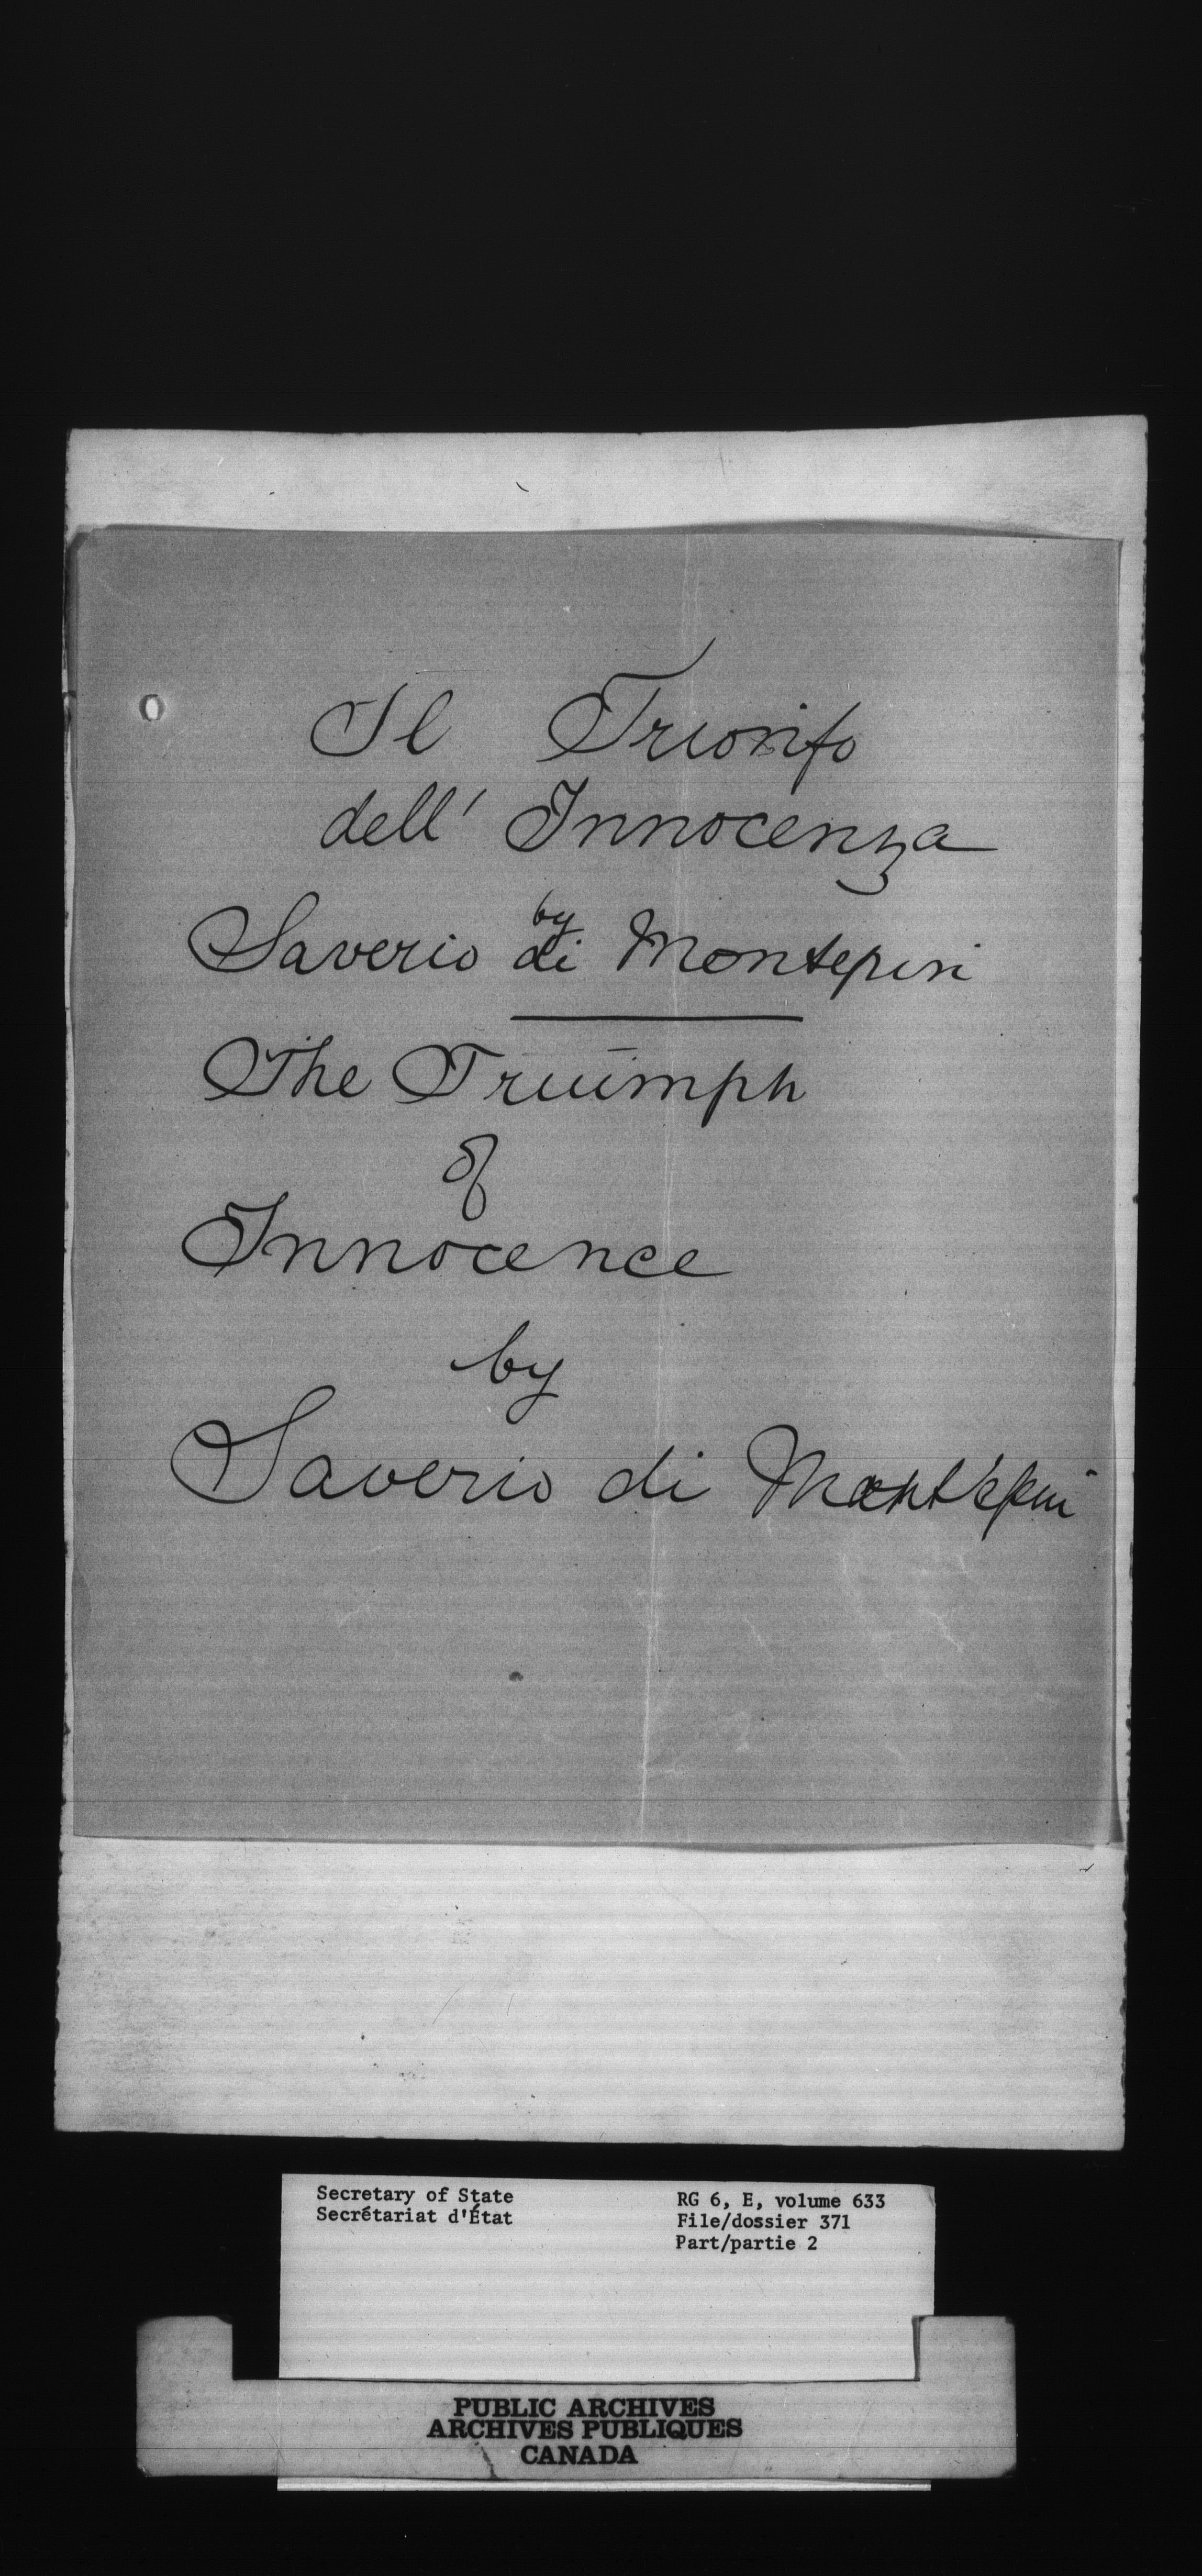 Il Trionfo
dell' Innocenza
by
Saverio di Montepini
The Truimph
of
Innocence
by
Saverio di Montépini
Secretary of State
Secrétariat d'État
RG 6, E, volume 633
File/dossier 371
Part/partie 2
PUBLIC ARCHIVES
ARCHIVES PUBLIQUES
CANADA